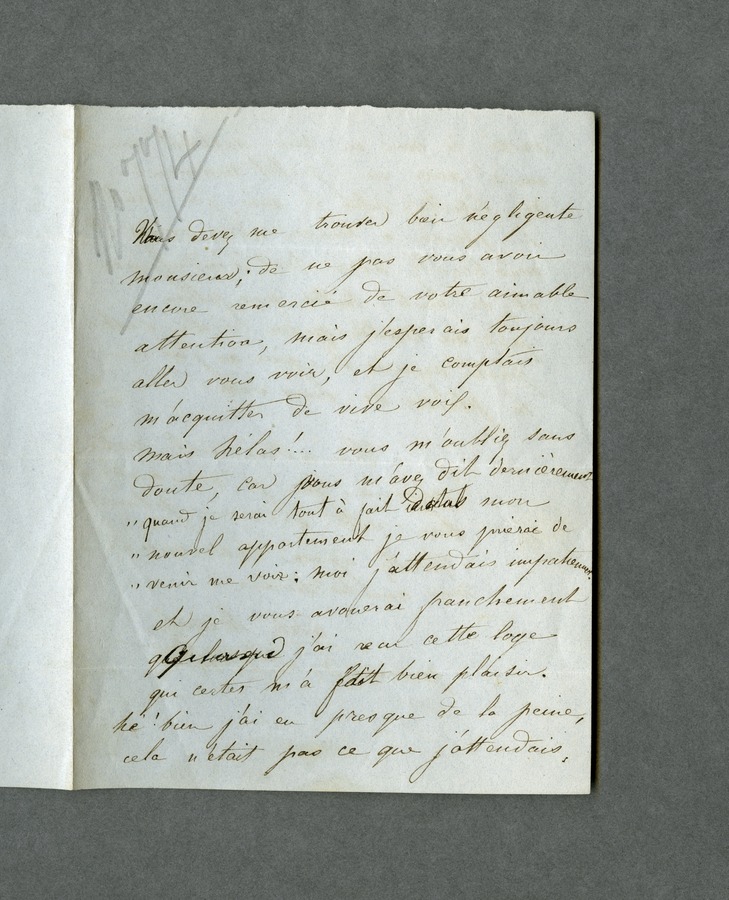 No 774
Vous devez me trouver bien négligente
monsieur, de ne pas vous avoir
encore remercié de votre aimable
attention, mais j'esperais toujours
aller vous voir, et je comptais
m'acquitter de vive voix.
mais hélas!... vous m'oubliez sans
doute, car vous m'avez dit dernièrement
"quand je serai tout à fait dans mon
"nouvel appartement je vous prierai de
"venir me voir: moi j'attendais impatiemmt.
et je vous avouerai franchement
j'ai reçu cette loge
qui certes m'a fait bien plaisir.
hé! bien j'ai eu presque de la peine,
cela n'était pas ce que j'attendais.